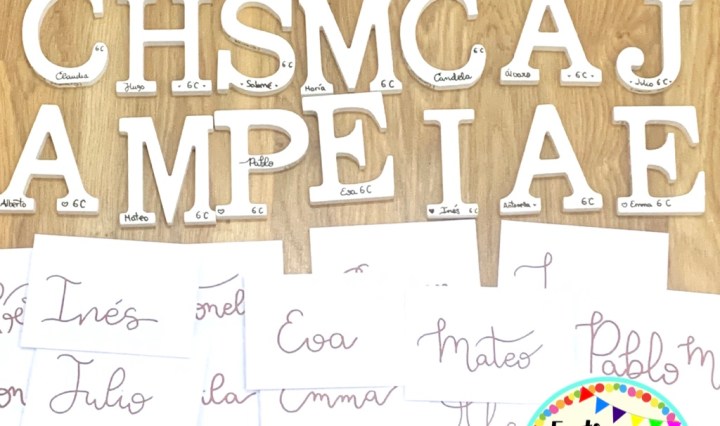 C H S M C A J
Claudia 6C Hugo · 6C · · Salomé · 6C María 6C Candela 6C Álvaro · 6C · · Julio 6C ·
A M P E I A E
Alberto ♡ 6C Mateo 6C Pablo ♡ 6C Eva 6C ♥ Inés 6C 6C ♡ Emma 6C
Inés
Eva
Mateo
Pablo
Julio
Emma